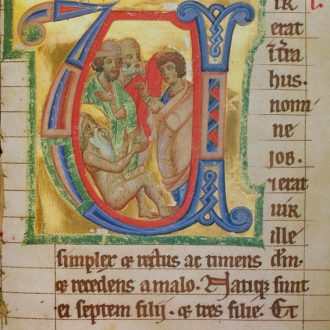 ir
erat
in t̄ra
hus.
nomi
ne
JOB.
⁊ erat
uir
ille
simplex ⁊ rectus ac timens dm̄.
⁊ recedens a malo. Natiq; sunt
ei septem filij. ⁊ tres filie. Et